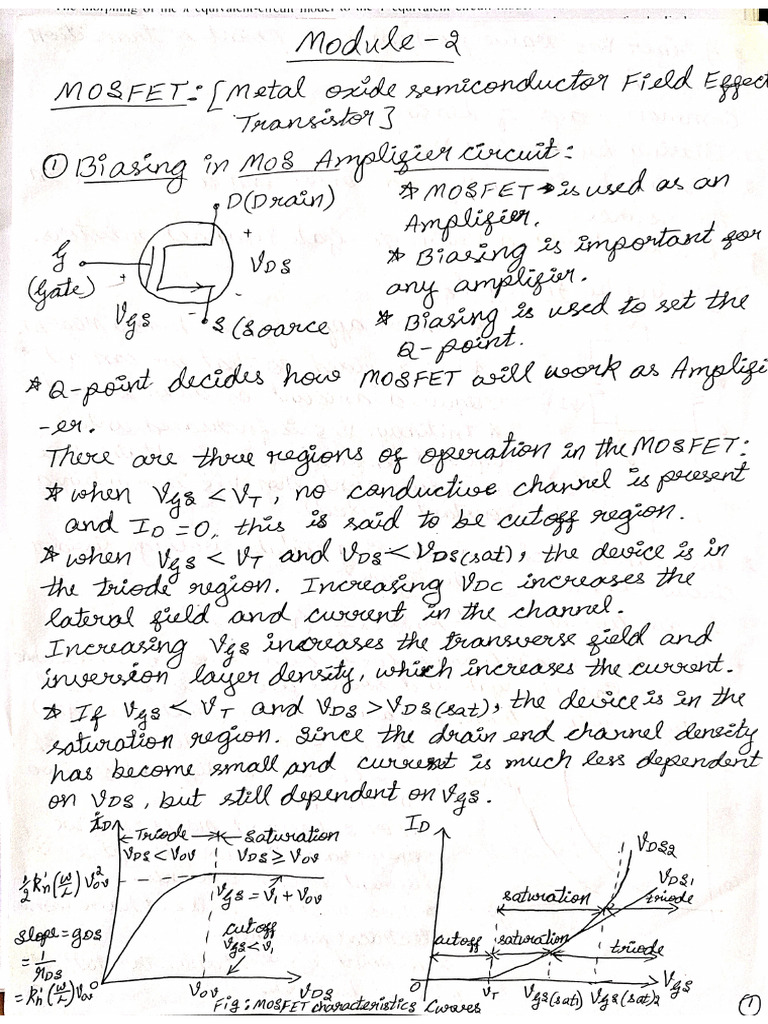 Module-2
MOSFET:- [Metal oxide semiconductor Field Effect
Transistor]
① Biasing in MOS Amplifier circuit:
D(Drain)
G
(Gate)
+
VGS
-
+
VDS
-
S(Soarce
* MOSFET → is used as an
Amplifier.
* Biasing is important for
any amplifier.
* Biasing is used to set the
Q-point.
* Q-point decides how MOSFET will work as Amplifi
-er.
There are three regions of operation in the MOSFET:
* when VGS < VT, no conductive channel is present
and ID = 0, this is said to be cutoff region.
* when VGS < VT and VDS < VDS(sat), the device is in
the triode region. Increasing VDC increases the
lateral field and current in the channel.
Increasing VGS increases the transverse field and
inversion layer density, which increases the current.
* If VGS < VT and VDS > VDS(sat), the device is in the
saturation region. Since the drain end channel density
has become small and current is much less dependent
on VDS, but still dependent on VGS.
iD
← Triode → ← saturation
VDS < VOV VDS ≥ VOV
½ Kn' (W/L) VOV²
VGS = V1 + VOV
slope = gDS
= 1/rDS
= Kn' (W/L) VOV
cutoff
VGS < V1
0
VOV
VDS
ID
VDS2
VDS1
saturation
triode
cutoff
saturation
triode
0
VT
VGS(sat)1
VGS(sat)2
VGS
Fig: MOSFET characteristics Curves
①